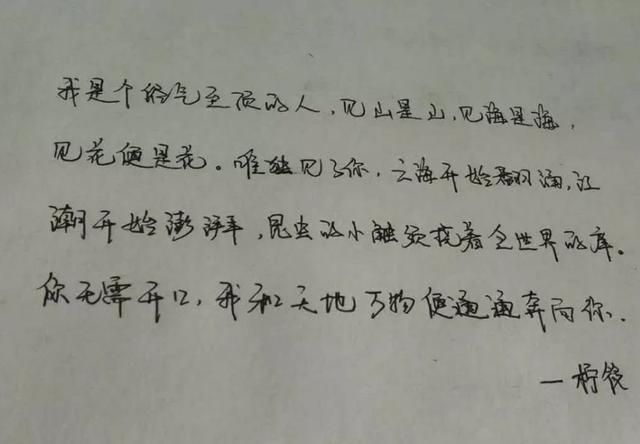 我是个俗气至顶的人,见山是山,见海是海,
见花便是花。唯独见了你,云海开始翻涌,江
潮开始澎湃,昆虫的小触须挠着全世界的痒。
你无需开口,我和天地万物便通通奔向你.
一柠筱